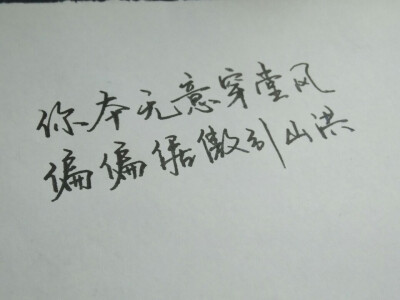 你本无意穿堂风
偏偏倨傲引山洪